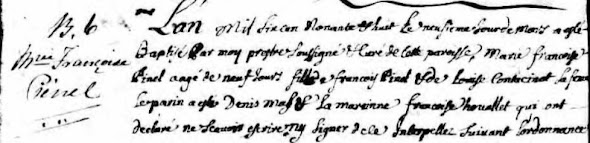 B. 6
Mrie Françoise
Pinel
L'an Mil six cen Nonante & huit Le neufieme Jour de Mars a esté
Baptisé Par moy prestre soussigné & Curé de cette paroisse, Marie francoise
Pinel aagé de neuf Jours fille de francois Pinel & de Louise Contecinet sa feme
Le parin a esté Denis & La maraine francoise houallet qui ont
declaré ne scavoir escrire ny signer de ce Interpellez suivant L'ordonnance